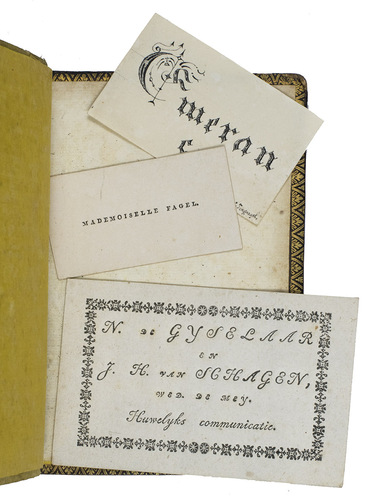 Cameran
MADEMOISELLE FAGEL.
N. DE GYSELAAR
EN
J. H. VAN SCHAGEN,
WED. DE MEY.
Huwelyks communicatie.